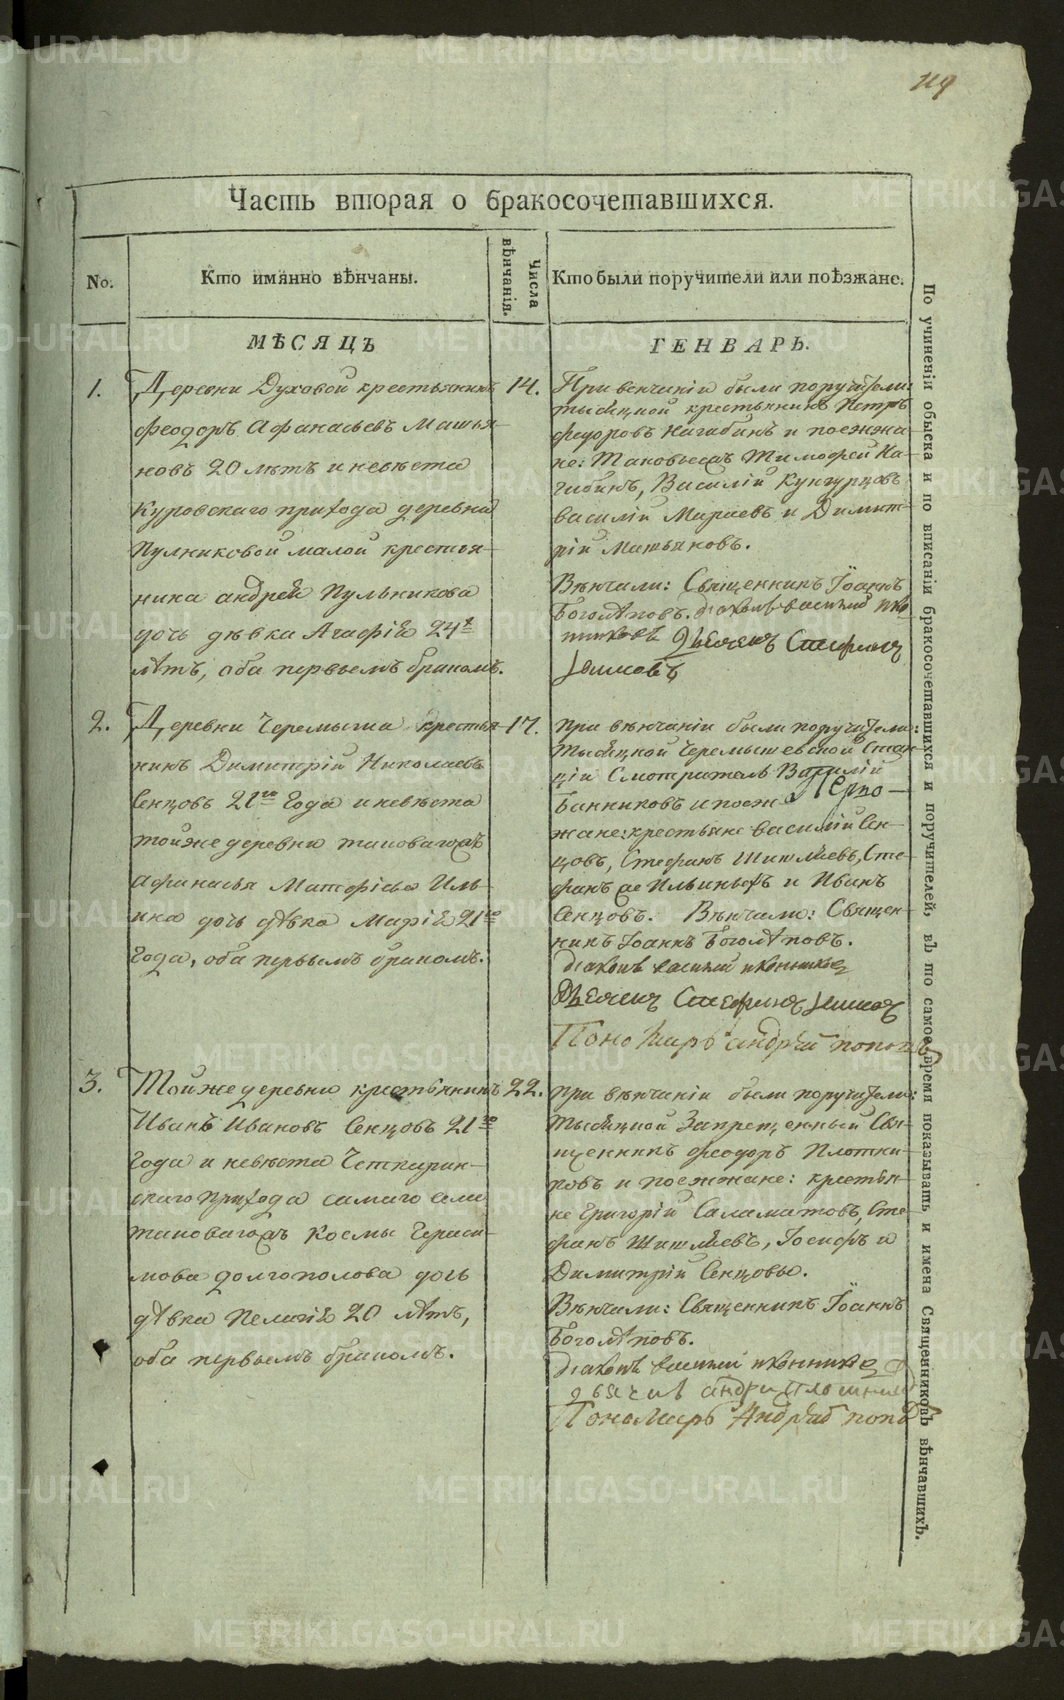 119
Часть вторая о бракосочетавшихся.
No.
Кто имянно вѣнчаны.
Числа вѣнчанія.
Кто были поручители или поѣзжане.
МѢСЯЦЪ
ГЕНВАРЬ.
1.
Деревни Духовой крестьянинъ
Феодоръ Афанасьевъ Матья-
новъ 20 лѣтъ и невѣста
Куровскаго прихода деревни
Пулниковой малой крестья-
нина андрей Пульникова
дочь дѣвка Агафія 24хъ
лѣтъ, оба первымъ бракомъ.
14.
При венчаніи были поручители:
тысяцкой крестьянинъ Петръ
федоровъ Нагибинъ и поезжа-
не: таковыежъ Тимофей На-
гибинъ, Василій Кунгурцовъ
василій Мараевъ и Димит-
рій Матьяновъ.
Вѣнчали: Священникъ Іоаннъ
Боголѣповъ. діаконъ василий ико
нниковъ Дьячекъ Стефанъ
2.
Деревни Черемыша крестья-
нинъ Димитрій Николаевъ
Сенцовъ 21го Года и невѣста
тойже деревни таковагожъ
Афанасья Матфіева Иль-
ина дочь дѣвка Марія 21го
Года, оба первымъ бракомъ.
17.
При вѣнчаніи были поручители:
тысяцкой Черемышевской Стан-
ціи Смотритель Василій
Банниковъ и поезж-
жане: крестьяне василій Сен-
цовъ, Стефанъ Шишляевъ, Сте-
фанъ Ильиныхъ и Иванъ
Сенцовъ. Вѣнчали: Священ-
никъ Іоаннъ Боголѣповъ.
діаконъ василий иконниковъ
Дьячекъ Стефанъ
Пономарь андрей поповъ
3.
Тойже деревни крестьянинъ
Иванъ Ивановъ Сенцовъ 21го
Года и невѣста Четкарин-
скаго прихода самаго села
таковагожъ Космы Гераси-
мова Долгополова дочь
дѣвка Пелагія 20 лѣтъ,
оба первымъ бракомъ.
22.
При вѣнчаніи были поручители:
тысяцкой Запрещенный Свя-
щенникъ феодоръ Плотни-
ковъ и поезжане: крестья-
не Григорій Саламатовъ, Сте-
фанъ Шишляевъ, Іосифъ и
Димитрій Сенцовы.
Вѣнчали: Священникъ Іоаннъ
Боголѣповъ.
діаконъ василий иконниковъ
Пономарь Андрей поповъ
По учиненіи обыска и по вписаніи бракосочетавшихся и поручителей, въ то самое время показывать и имена Священниковъ вѣнчавшихъ.
METRIKI.GASO-URAL.RU